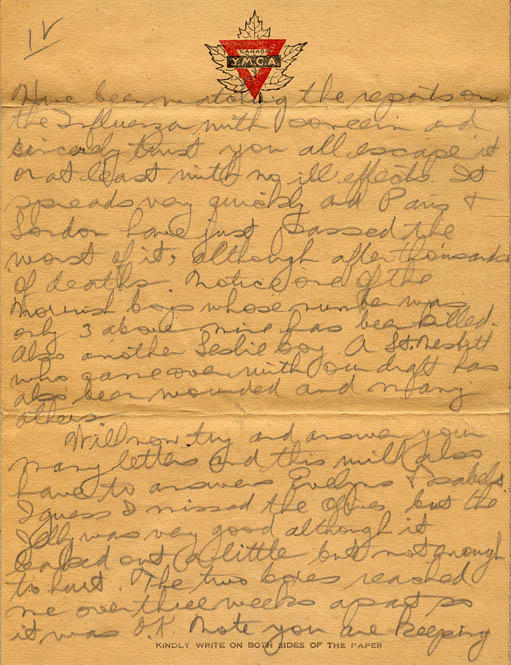 IV
CANADA
Y.M.C.A.
Have been watching the reports on
the Influenza with concern and
sincerely trust you all escape it
or at least with no ill effects. It
spreads very quickly and Paris &
London have just passed the
worst of it, although after thousands
of deaths. Notice one of the
boys whose number was
only 3 above mine has been killed.
Also another Leslie boy. A Lt. Nesbitt
who came over with our draft has
also been wounded and many
others.
Will now try and answer your
many letters and this will also
have to answer Evelyns & Isabels.
I guess I missed the but the
Jelly was very good although it
leaked out a little but not enough
to hurt. The two boxes reached
me over three weeks apart so
it was O.K. Note you are keeping
KINDLY WRITE ON BOTH SIDES OF THE PAPER